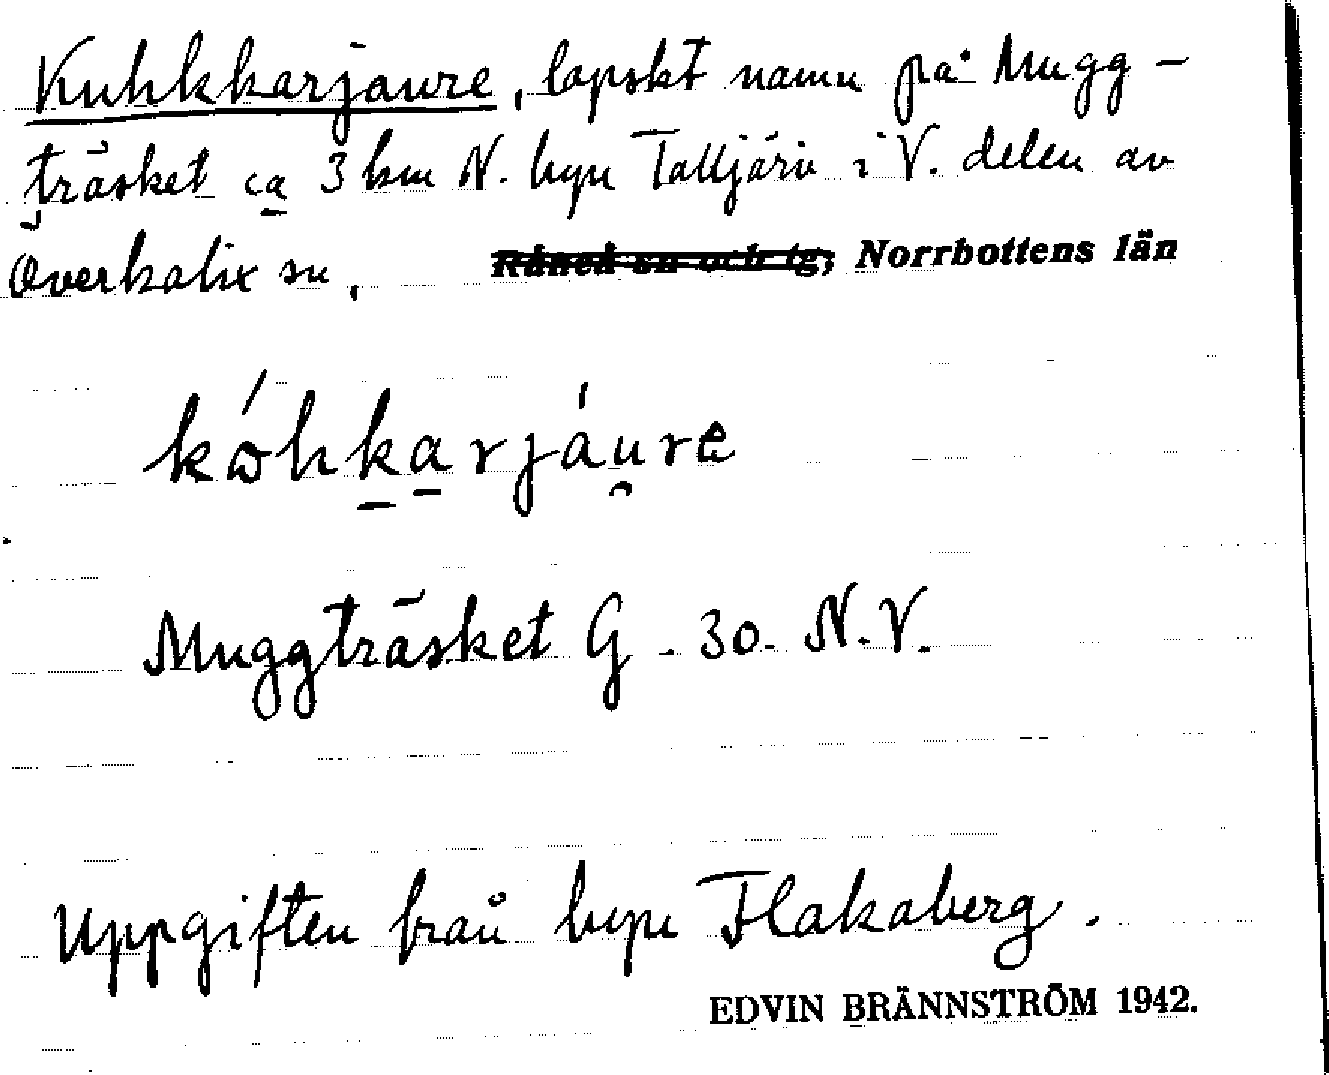 Kuhkkarjaure, lapskt namn på Mugg-
träsket ca 3 km N. byn Talljärv i V. delen av
Överkalix sn, Råneå sn och tg, Norrbottens län
kóhkarjáure
Muggträsket G - 30. N.V.
Uppgiften från byn Flakaberg.
EDVIN BRÄNNSTRÖM 1942.